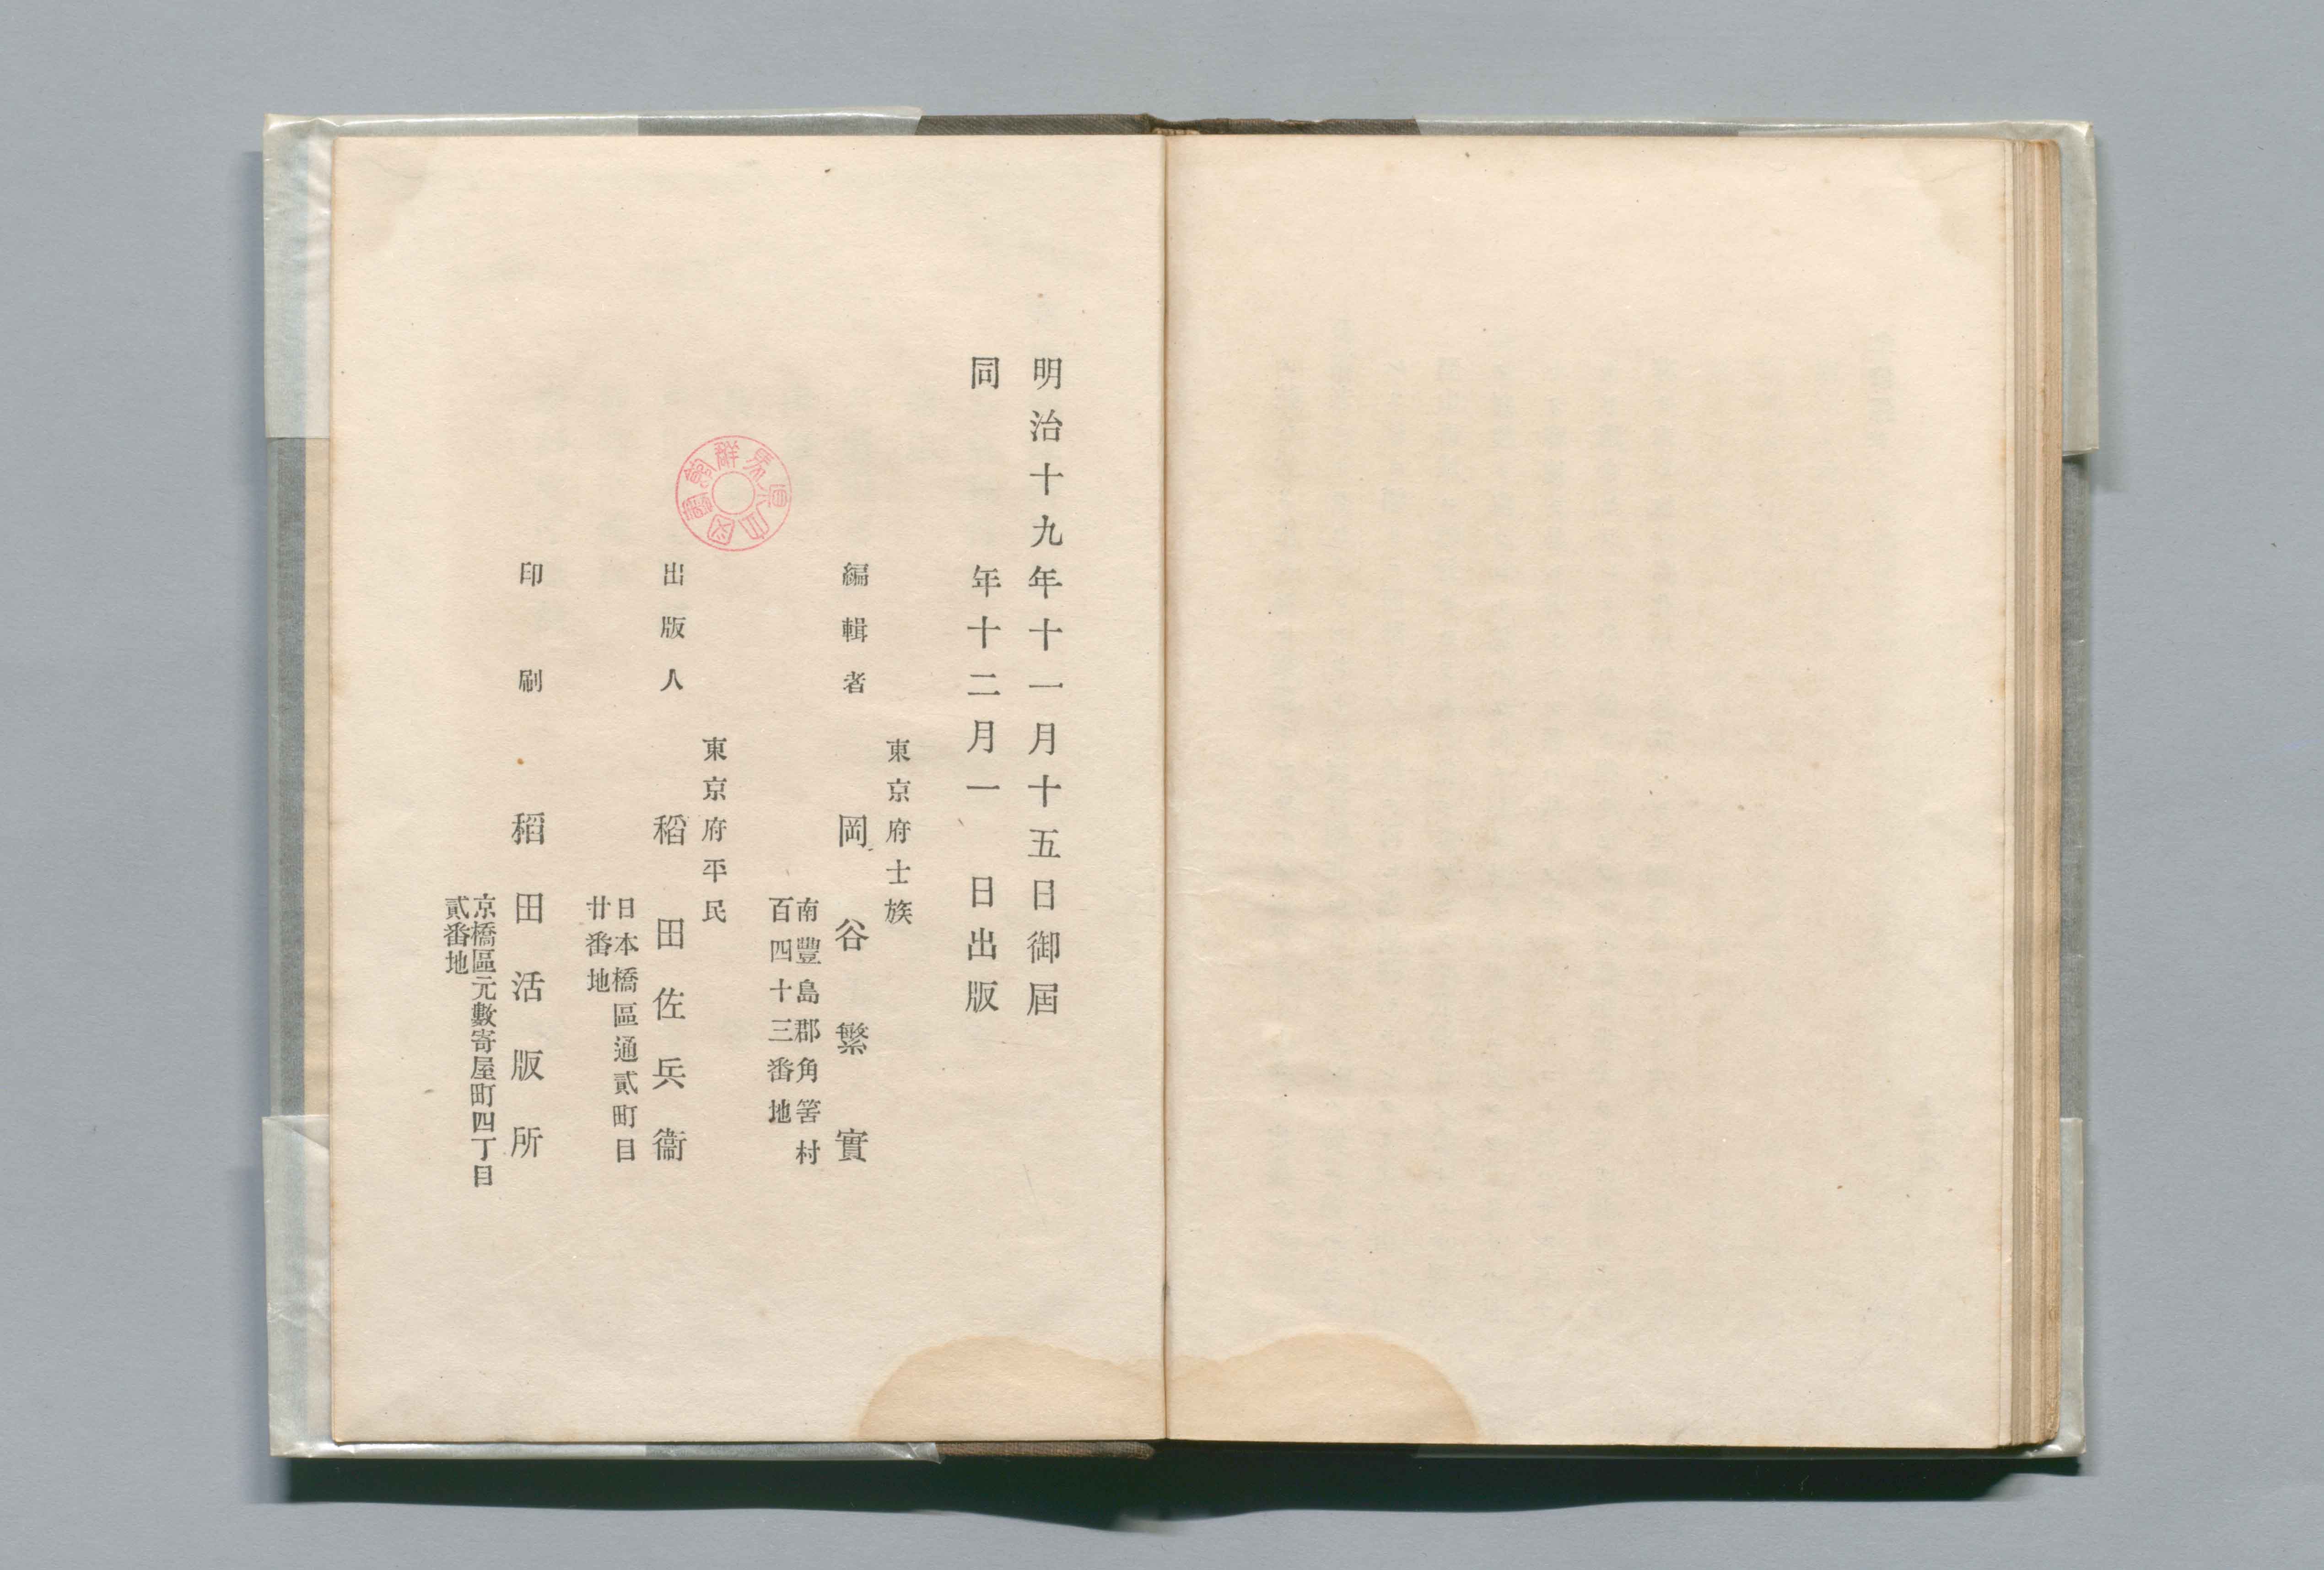 明治十九年十一月十五日御屆
同年十二月一日出版
東京府士族
編輯者 岡谷繁實
南豐島郡角筈村
百四十三番地
東京府平民
出版人 稻田佐兵衞
日本橋區通貳町目
廿番地
印刷 稻田活版所
京橋區元數寄屋町四丁目
貳番地